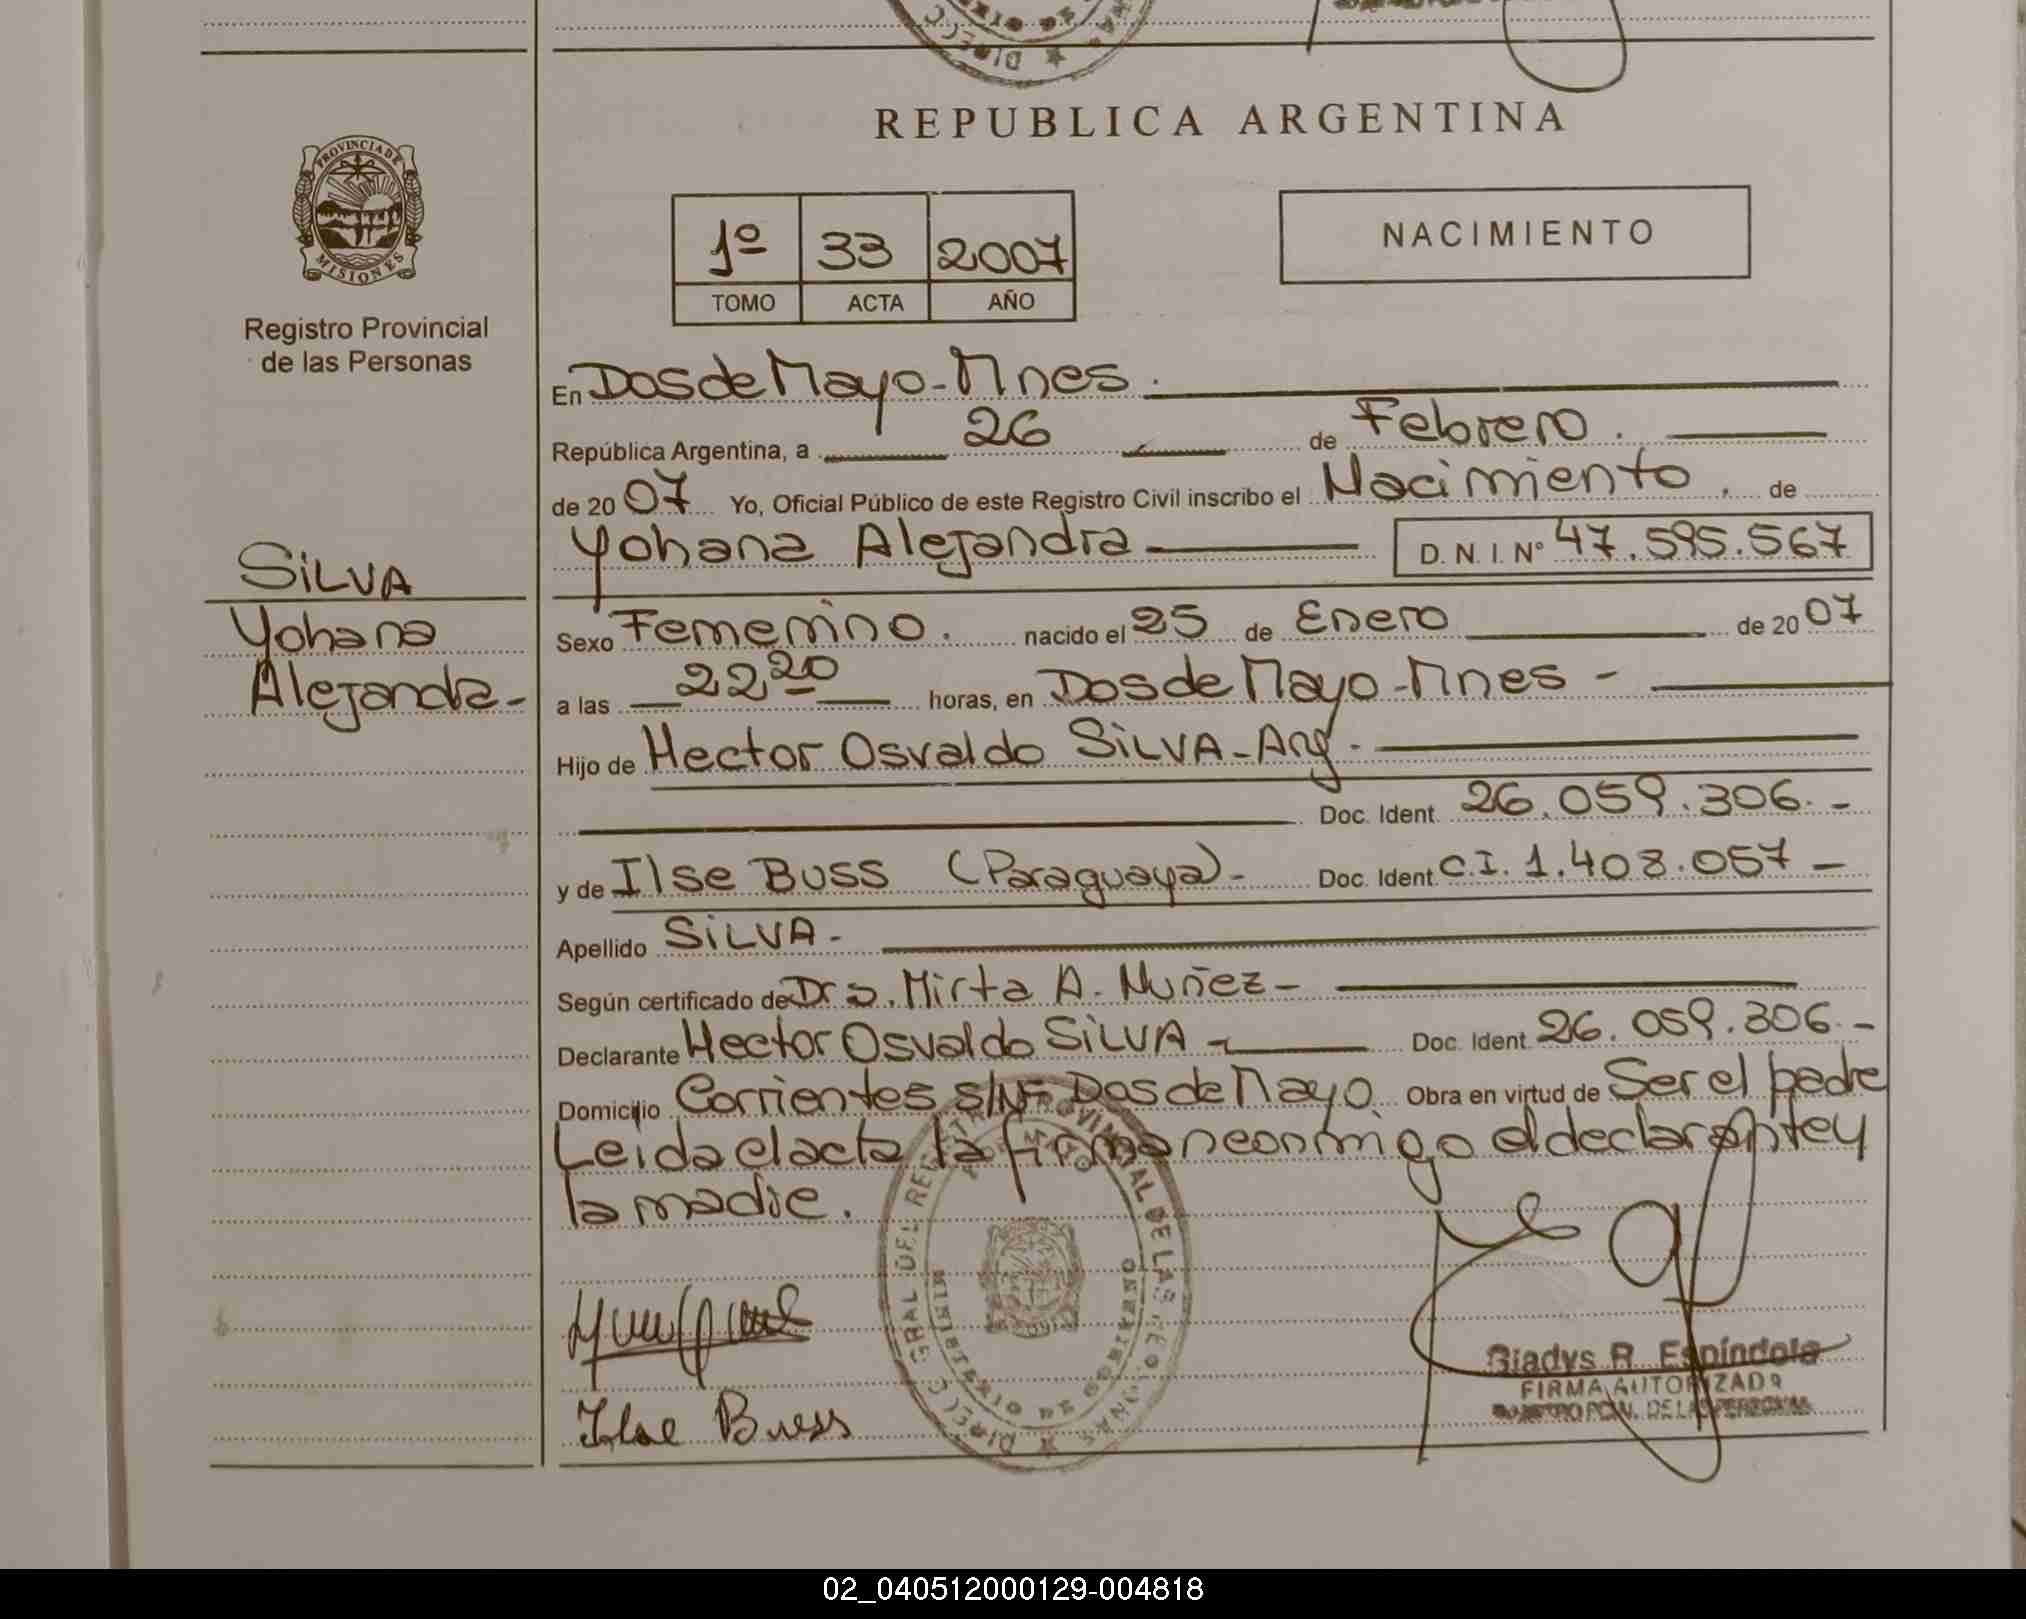 REPUBLICA ARGENTINA
PROVINCIA DE
MISIONES
Registro Provincial
de las Personas
1º 33 2007
TOMO ACTA AÑO
NACIMIENTO
En Dos de Mayo - Mnes.
República Argentina, a 26 de Febrero.
de 2007 Yo, Oficial Público de este Registro Civil inscribo el Nacimiento. de
Yohana Alejandra D. N. I. Nº 47.595.567
SILVA
Yohana
Alejandra-
Sexo Femenino. nacido el 25 de Enero de 2007
a las 22 20 horas, en Dos de Mayo - Mnes -
Hijo de Hector Osvaldo SILVA - Arg.
Doc. Ident. 26.059.306.-
y de Ilse Buss (Paraguaya)- Doc. Ident. C.I. 1.408.057 -
Apellido SILVA-
Según certificado de Dra. Mirta A. Nuñez -
Declarante Hector Osvaldo SILVA - Doc. Ident. 26.059.306.-
Domicilio Corrientes s/Nº Dos de Mayo. Obra en virtud de Ser el padre
Leida el acta la firman conmigo el declarante y
la madre.
Ilse Buss
Gladys R. Espíndola
FIRMA AUTORIZADA
02_040512000129-004818